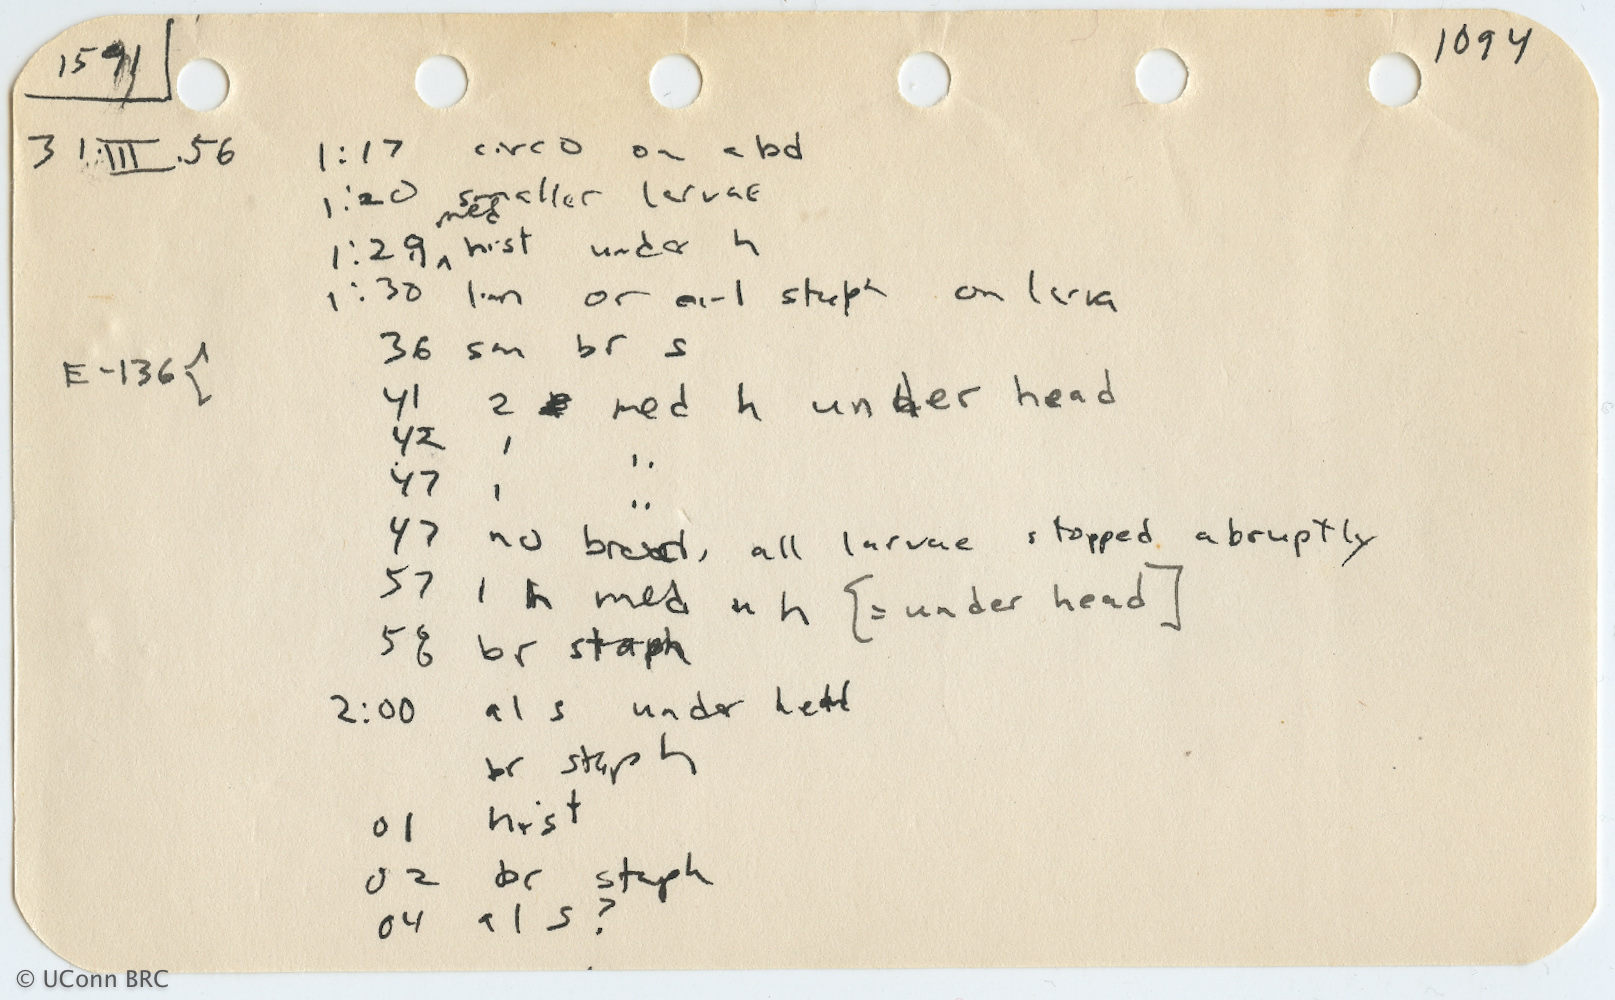 1591
1094
31.III.56 1:17 circO on abd
1:20 smaller larvae
1:29 med hist under h
1:30 lim or staph on larva
36 sm br s
E-136{
41 2 med h under head
42 1 "
47 1 "
47 no brood, all larvae stopped abruptly
57 1 h med u h [= under head]
58 br staph
2:00 al s under head
br staph
01 hist
02 br staph
04 al s?
© UConn BRC